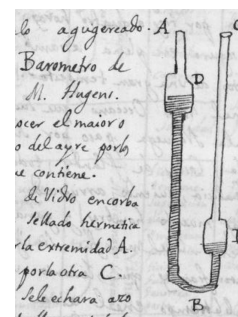 lo agugereado. A
Barometro de
M. Hugens.
ocer el maior o
o del ayre por los
ue contiene.
de Vidro encorba
sellado hermetica
r la extremidad A.
por la otra C.
Se le echara azo
C
D
B